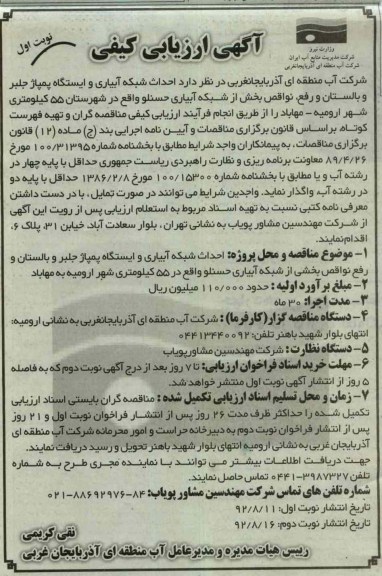 وزارت نیرو
شرکت مدیریت منابع آب ایران
شرکت آب منطقه ای آذربایجانغربی
آگهی ارزیابی کیفی
نوبت اول
شرکت آب منطقه ای آذربایجانغربی در نظر دارد احداث شبکه آبیاری و ایستگاه پمپاژ جلبر
و بالستان و رفع، نواقص بخش از شبکه آبیاری حسنلو واقع در شهرستان ۵۵ کیلومتری
شهر ارومیه - مهاباد را از طریق انجام فرآیند ارزیابی کیفی مناقصه گران و تهیه فهرست
کوتاه، براساس قانون برگزاری مناقصات و آیین نامه اجرایی بند (ج) ماده (۱۲) قانون
برگزاری مناقصات، به پیمانکاران واجد شرایط مطابق با بخشنامه شماره ۱۰۰/۳۱۳۹۵ مورخ
۸۹/۴/۲۶ معاونت برنامه ریزی و نظارت راهبردی ریاست جمهوری حداقل با پایه چهار در
رشته آب و یا مطابق با بخشنامه شماره ۱۰۰/۱۵۳۰۰ مورخ ۱۳۸۶/۲/۸ حداقل با پایه دو
در رشته آب، واگذار نماید. واجدین شرایط می توانند در صورت تمایل، با در دست داشتن
معرفی نامه کتبی نسبت به تهیه اسناد مربوط به استعلام ارزیابی پس از رویت این آگهی
از شرکت مهندسین مشاور پویاب به نشانی تهران، بلوار سعادت آباد، خیابان ۳۱، پلاک ۶،
اقدام نمایند.
۱- موضوع مناقصه و محل پروژه: احداث شبکه آبیاری و ایستگاه پمپاژ جلبر و بالستان و
رفع نواقص بخشی از شبکه آبیاری حسنلو واقع در ۵۵ کیلومتری شهر ارومیه به مهاباد
۲- مبلغ برآورد اولیه : حدود ۱۱۰/۰۰۰ میلیون ریال
۳- مدت اجرا: ۳۰ ماه
۴- دستگاه مناقصه گزار (کارفرما) : شرکت آب منطقه ای آذربایجانغربی به نشانی ارومیه:
انتهای بلوار شهید باهنر تلفن: ۰۴۴۱۳۴۴۰۰۹۲
۵- دستگاه نظارت : شرکت مهندسین مشاور پویاب
۶- مهلت خرید اسناد فراخوان ارزیابی: تا ۷ روز بعد از درج آگهی نوبت دوم که به فاصله
۵ روز از انتشار آگهی نوبت اول منتشر خواهد شد.
۷- زمان و محل تسلیم اسناد ارزیابی تکمیل شده : مناقصه گران بایستی اسناد ارزیابی
تکمیل شده را حداکثر ظرف مدت ۲۶ روز پس از انتشار فراخوان نوبت اول و ۲۱ روز
پس از انتشار فراخوان نوبت دوم به دبیرخانه حراست و امور محرمانه شرکت آب منطقه ای
آذربایجان غربی به نشانی ارومیه انتهای بلوار شهید باهنر تحویل و رسید دریافت نمایند.
جهت دریافت اطلاعات بیشتر می توانند با نماینده مجری طرح به شماره
تلفن ۳۹۸۷۳۲۷-۰۴۴۱ تماس حاصل نمایند.
شماره تلفن های تماس شرکت مهندسین مشاور پویاب: ۸۴-۸۸۶۹۲۹۷۶-۰۲۱
تاریخ انتشار نوبت اول: ۹۲/۸/۱۱
تاریخ انتشار نوبت دوم: ۹۲/۸/۱۶
نقی کریمی
رییس هیات مدیره و مدیرعامل آب منطقه ای آذربایجان غربی